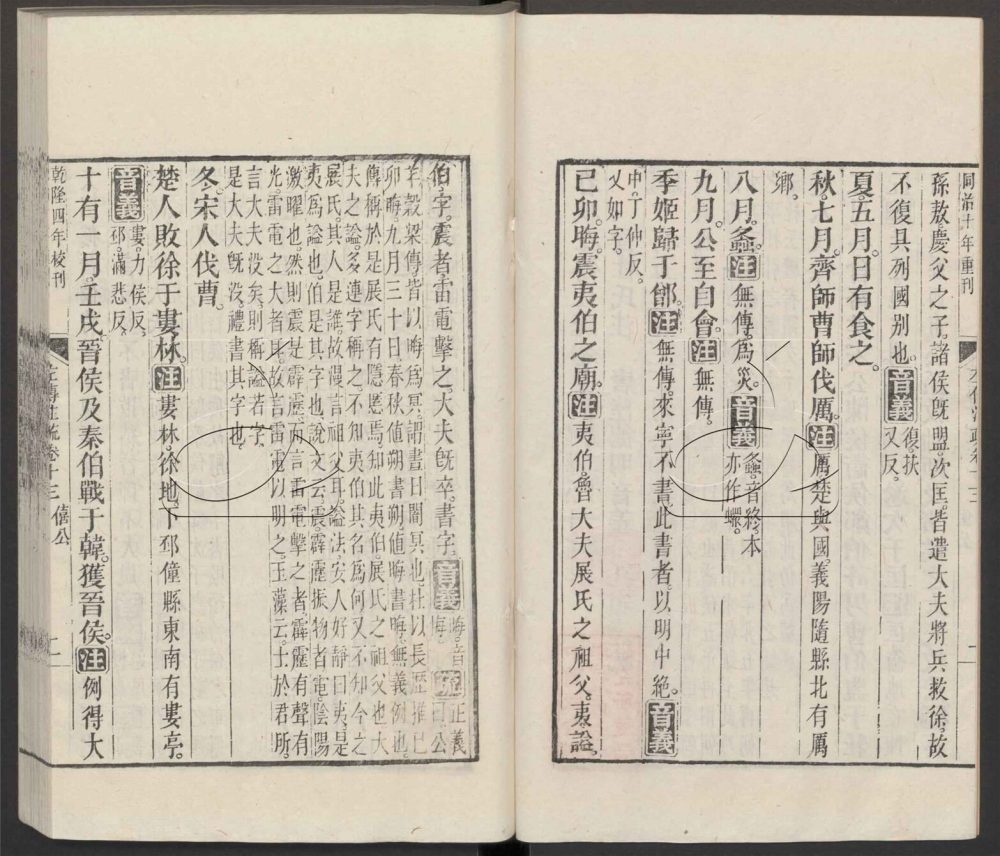 同治十年重刊
孫敖慶父之子諸侯既盟次匡皆遣大夫將兵救徐故
不復具列國別也音義復扶
又反
夏五月日有食之
秋七月齊師曹師伐厲注厲楚與國義陽隨縣北有厲
鄉
八月螽注無傳為災音義螽音終本
亦作䗥
九月公至自會注無傳
季姬歸于鄫注無傳來寧不書此書者以明中絕音義
中丁仲反
又如字
己卯晦震夷伯之廟注夷伯魯大夫展氏之祖父夷謚
伯字震者雷電擊之大夫既卒書字音義晦音
悔疏正義
曰公
羊穀梁傳皆以晦為冥謂晝日闇冥也杜以長歷推己
卯晦九月三十日春秋值朔書朔值晦書晦無義例也
傳稱於是展氏有隱慝焉知此夷伯展氏之祖父也大
夫之謚多連字稱之不知夷伯其名為何又不知今之
展氏其人是誰故漫言祖父耳謚法安人好靜曰夷是
夷為謚也伯是其字也說文云震霹靂振物者電陰陽
激曜也然則震是霹靂而言雷電擊之者霹靂有聲有
光雷電之大者耳故言雷電以明之玉藻云士於君所
言大夫沒矣則稱謚若字
是大夫既沒禮書其字也
冬宋人伐曹
楚人敗徐于婁林注婁林徐地下邳僮縣東南有婁亭
音義婁力侯反
邳蒲悲反
十有一月壬戌晉侯及秦伯戰于韓獲晉侯注例得大
乾隆四年校刊
僖公